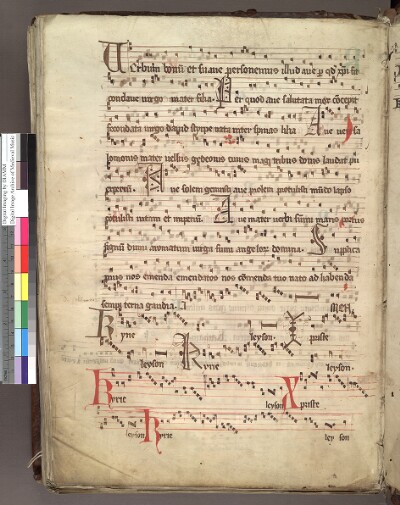 Verbum bonū et suave personemus illud ave ꝑ qd xp̄i fit
conclave virgo mater filia. Per quod ave salutata mox cōcepit
fecundata virgo david stirpe nata inter spinas lilia Ave veri sa
lomonis mater vellus gedeonis cuius magi tribus donis laudant pu
erperiū. Ave solem genuisti ave prolem protulisti mūdo lapso
contulisti vitam et imperiū. Ave mater verbi sūmi maris portus
signū dumi aromatum virga fumi angelorū domina. Supplica
mus nos emenda emendatos nos cōmenda tuo nato ad habenda
sempiterna gaudia. AMEN.
Kyrie leyson. Xpiste
leyson Kyrie leyson.
Kyrie leyson Xpiste
leyson Kyrie ley son